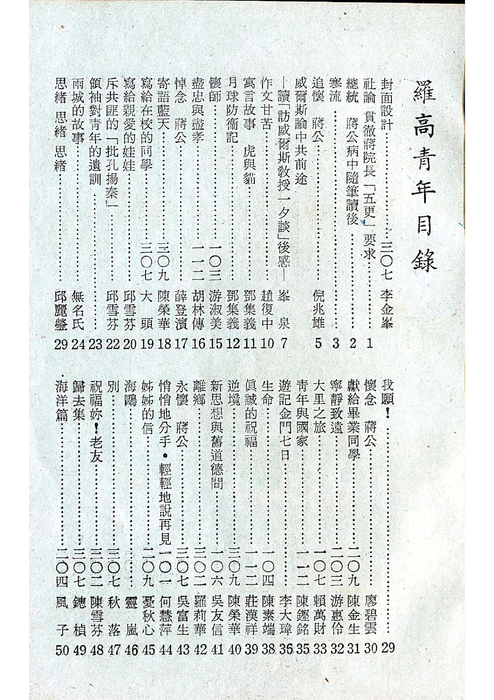 羅高青年目錄
封面設計……三〇七 李金峯
社論 貫徹蔣院長「五更」要求……1
總統 蔣公病中隨筆讀後……2
寒流……3
追懷 蔣公……倪兆雄 5
威爾斯論中共前途
—讀「訪威爾斯教授一夕談」後感—峯泉 7
作文甘苦……趙復中 10
寓言故事 虎與貓……鄧集義 11
月球防衞記……鄧集義 12
懷師……一〇三 游淑美 15
盡忠與盡孝……一一二 胡林傳 16
悼念 蔣公……薛登濱 17
寄語藍天……三〇九 陳榮華 18
寫給在校的同學……三〇七 大頭 19
寫給親愛的娃娃……邱雪芬 20
斥共匪的「批孔揚秦」……邱雪芬 22
領袖對青年的遺訓……23
雨城的故事……無名氏 24
思緒 思緒 思緒……邱麗鑾 29
我願!……29
懷念 蔣公……廖碧雲 30
獻給畢業同學……二〇九 陳金生 31
寧靜致遠……二〇三 游惠伶 32
大里之旅……一〇七 賴萬財 33
青年與國家……一一二 陳鏗銘 35
遊記金門七日……李大瑋 36
生命……一〇四 陳素端 38
眞誠的祝福……一一二 莊漢祥 39
逆境……三〇九 陳榮華 40
新思想與舊道德間……一〇六 吳友信 41
離鄉……三〇二 羅莉華 42
永懷 蔣公……三〇七 吳富生 43
悄悄地分手•輕輕地說再見……一〇一 何慧萍 44
姊姊的信……二〇九 憂秋心 45
海鷗……靈嵐 46
別……三〇七 秋落 47
祝福妳!老友……三〇二 陳雪芬 48
歸去集……三〇七 鏓楨 49
海洋篇……二〇四 風子 50